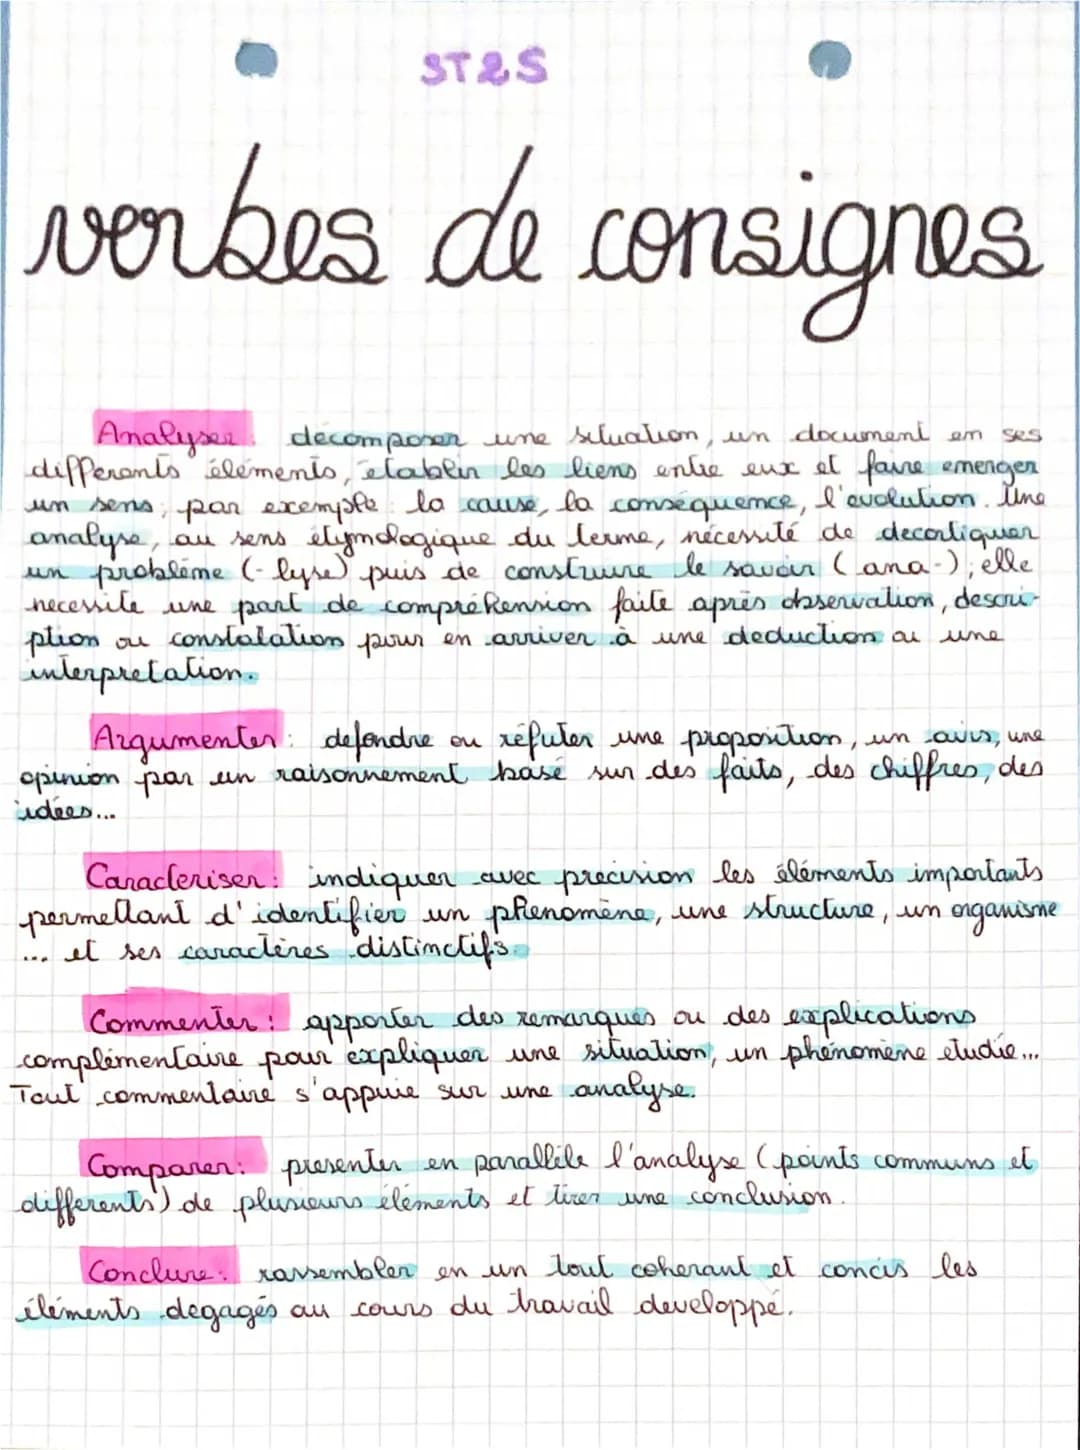 ST2S
verbes de consignes
Analyser : décomposer une situation, un document en ses
différents éléments, établir les liens entre eux et faire émerger
un sens ; par exemple : la cause, la conséquence, l'évolution. Une
analyse, au sens étymologique du terme, nécessité de decortiquer
un problème (-lyse) puis de construire le savoir (ana-) ; elle
necessite une part de compréhension faite après observation, descri-
ption ou constatation pour en arriver à une deduction ou une
interpretation.
Argumenter : defendre ou réfuter une proposition, un avis, une
opinion par un raisonnement basé sur des faits, des chiffres, des
idées...
Caracteriser : indiquer avec précision les éléments importants
permettant d'identifier un phénomène, une structure, un organisme
... et ses caractères distinctifs.
Commenter : apporter des remarques ou des explications
complémentaire pour expliquer une situation, un phénomène etudié...
Tout commentaire s'appuie sur une analyse.
Comparer : presenter en parallèle l'analyse (points communs et
differents) de plusieurs éléments et tirer une conclusion.
Conclure : rassembler en un tout coherant et concis les
éléments dégagés au cours du travail developpé.